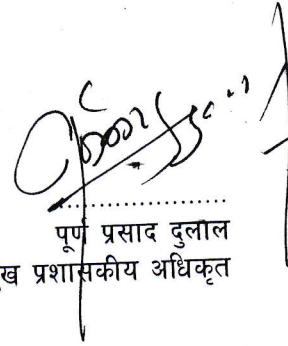 ....................
पूर्ण प्रसाद दुलाल
ख प्रशासकीय अधिकृत